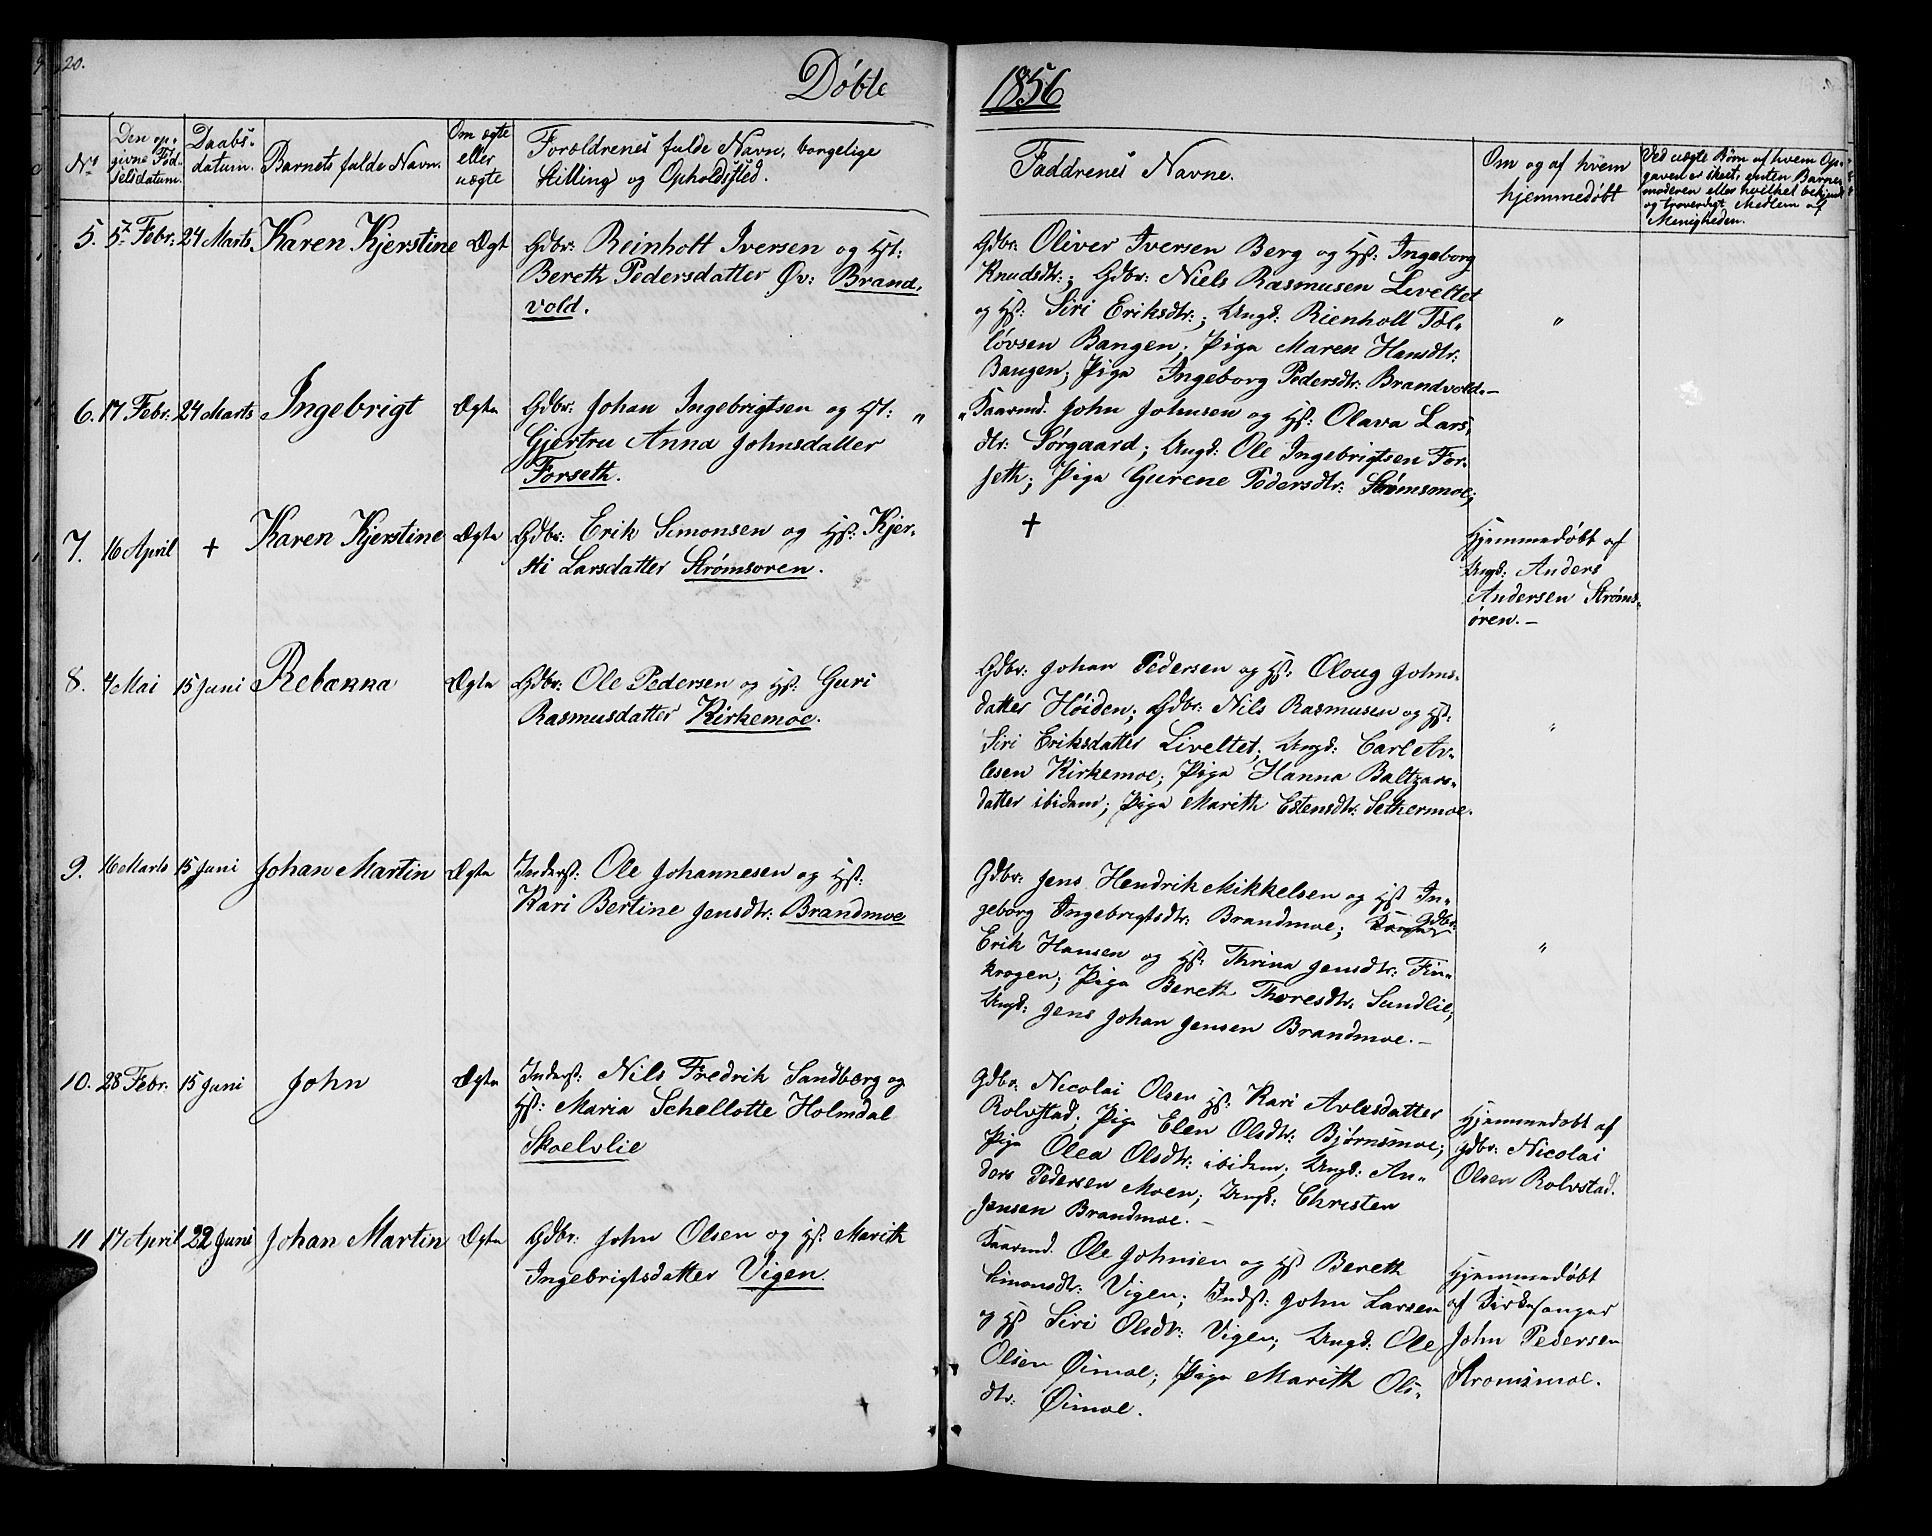 20.
Døbte
1856
No
Den op-
givne Fød-
selsdatum.
Daabs-
datum.
Barnets fulde Navn.
Om ægte
eller
uægte
Forældrenes fulde Navn, borgelige
Stilling og Opholdssted.
Faddrenes Navne.
Om og af hvem
hjemmedøbt
Ved uægte Børn af hvem Op-
gaven er skeet, enten Barne-
moderen eller hvilket bekjendt
og troverdigt Medlem af
Menigheden.
5. 5te Febr: 24 Marts Karen Kjerstine Ægt
Gdbr: Reinholt Iversen og Hst:
Bereth Pedersdatter Øv: Brand-
vold.
Gdbr: Oliver Iversen Berg og Hst: Ingeborg
Knudsdtr:; Gdbr: Niels Rasmusen Liveltet
og Hst: Siri Eriksdtr:; Ungk: Rienholt Tol-
løvsen Bangen; Piga Maren Hansdtr:
Bangen; Piga Ingeborg Pedersdtr: Brandvold.—
"
6. 17 Febr: 24 Marts Ingebrigt Ægte
Gdbr: Johan Ingebrigtsen og Hst: "
Gjertru Anna Johnsdatter
Forseth.
" Kaarmd. John Johnsen og Hst: Olava Lars-
dtr: Sørgaard; Ungk: Ole Ingebrigtsen For-
seth; Piga Gurene Pedersdtr: Strømsmoe;
7. 16 April + Karen Kjerstine Ægte
Gdbr: Erik Simonsen og Hst: Kjer-
sti Larsdatter Strømsøren.
+
Hjemmedøbt af
Ungk: Anders
Andersen Strøms-
øren.—
8. 4 Mai 15 Juni Rebekka Ægte
Gdbr: Ole Pedersen og Hst: Guri
Rasmusdatter Kirkemoe.
Gdbr: Johan Pedersen og Hst: Oloug Johns-
datter Høiden; Gdbr: Nils Rasmusen og Hst:
Siri Eriksdatter Liveltet; Ungk: Carl Av-
lesen Kirkemoe; Piga Hanna Baltzars-
datter ibidem; Piga Marith Estensdtr: Sethermoe.
"
9. 16 Marts 15 Juni Johan Martin Ægte
Inderst: Ole Johannesen og Hst:
Kari Bertine Jensdtr: Brandmoe
Gdbr: Jens Hendrik Mikkelsen og Hst In-
geborg Ingebrigtsdtr: Brandmoe; Gdbr:
Erik Hansen og Hst: Thrina Jensdtr: Fin-
krogen; Piga Bereth Thoresdtr: Sundlie;
Ungk: Jens Johan Jensen Brandmoe.—
"
10. 28 Febr. 15 Juni John Ægte
Inderst: Nils Fredrik Sandberg og
Hst: Maria Schellotte Holmdal
Skoelvlie
Gdbr: Nicolai Olsen Hst: Kari Avlesdatter
Rolvstad; Piga Elen Olsdtr: Bjørnsmoe;
Piga Olea Olsdtr: ibidem; Ungk: An-
ders Pedersen Moen; Ungk: Christen
Jensen Brandmoe.—
Hjemmedøbt af
Gdbr: Nicolai
Olsen Rolvstad.
11 17 April 22 Juni Johan Martin Ægte
Gdbr: John Olsen og Hst: Marith
Ingebrigtsdatter Vigen.
Kaarmd. Ole Johnsen og Hst Bereth
Simonsdtr: Vigen; Indst: John Larsen
og Hst Siri Olsdtr: Vigen; Ungk: Ole
Olsen Øimoe; Piga Marith Ols-
dtr: Øimoe.
Hjemmedøbt
af Kirkesanger
John Pedersen
Stromsmoe.